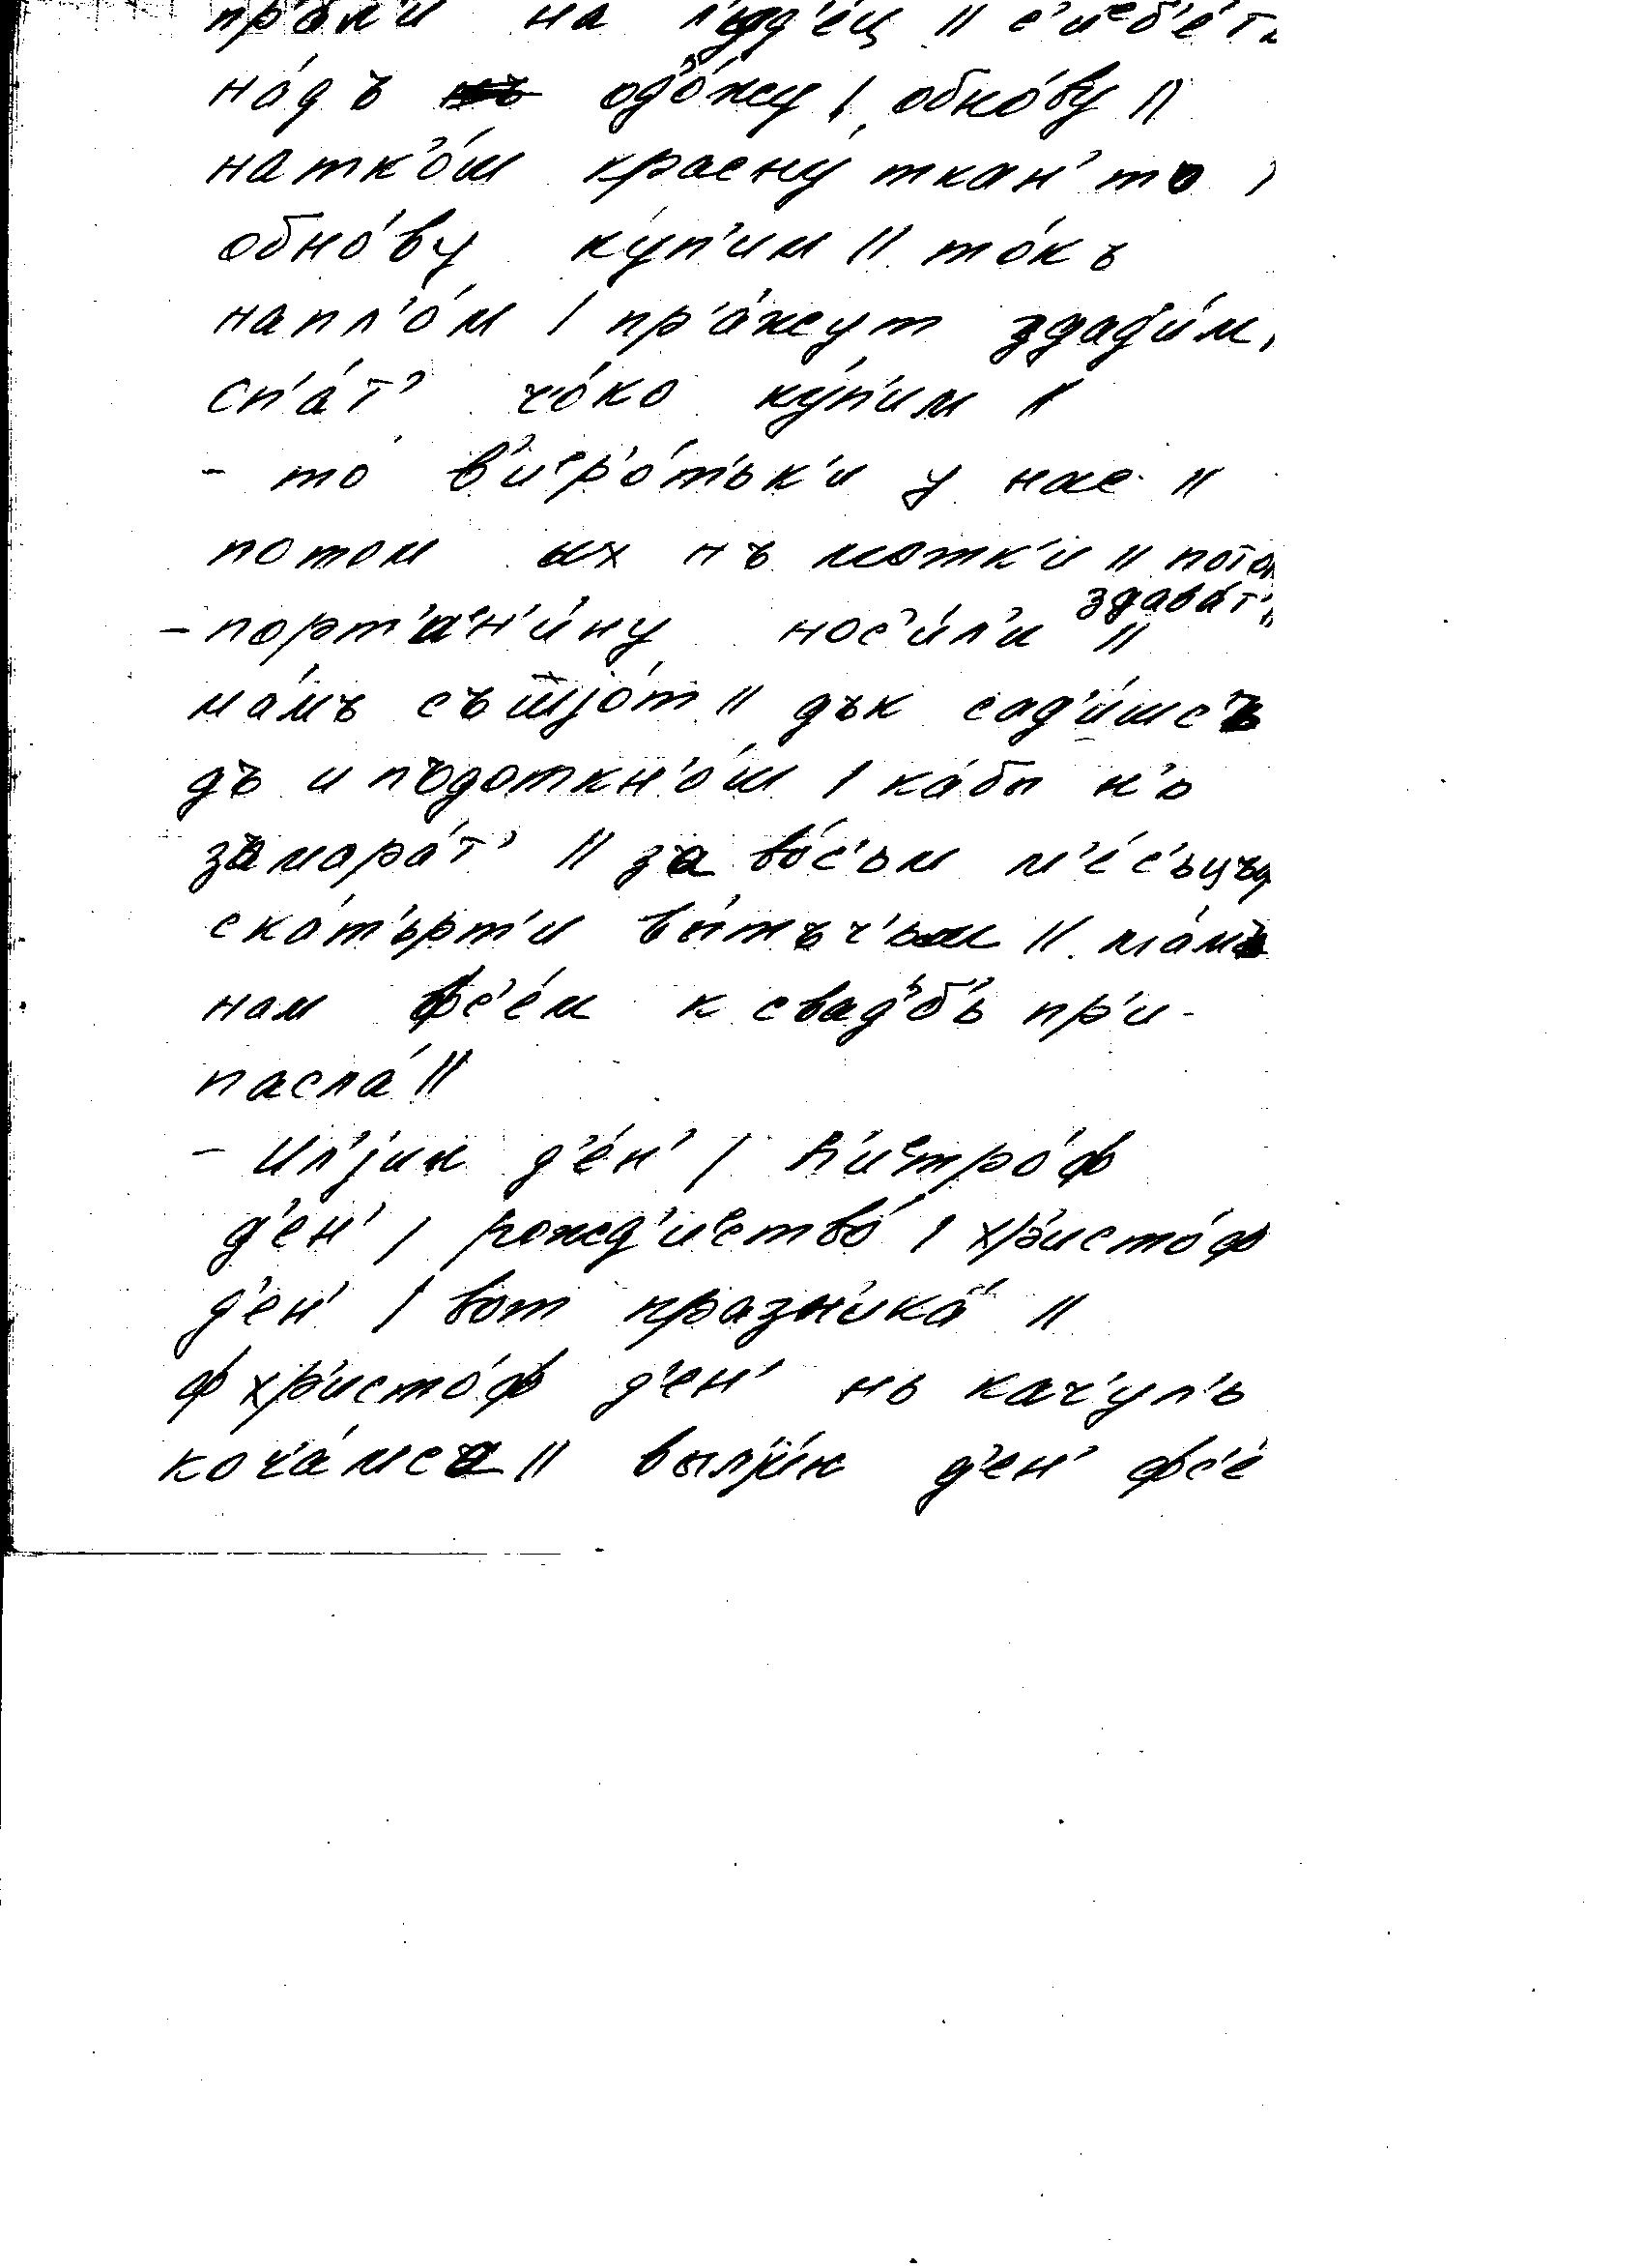 пр'а́л'и на л'уд'е́й || с'иеб'е́ т
на́дъ од'о́жу |, обно́ву ||
натк'о́ш красну ткан' то |
обно́ву ку́п'им || то́къ
напл'о́м | пр'а́жут здади́м,
сп'а́т' чо́ко ку́п'им ||
- то в'иер'о́т'ьк'и у нас ||
потом их нъ мотк'и || потом
здава́т' ||
- порт'ан'и́ну нос'и́л'и ||
ма́мъ съшjо́т || дък сад'и́шсъ
дъ и пъдоткн'о́ш | ка́бы н'ь
замара́т' || за во́с'ьм м'е́с'ьцъф
ска́т'ьрт'и вы́тъч'ьм || ма́мъ
нам фс'е́м к свад'б'ь пр'и-
пасла́ ||
- Ил'jин д'е́н' | П'иетро́ф
д'ен' | рожд'иество́ | хр'исто́ф
д'ен' | вот празн'ика́ ||
ф хр'исто́ф д'ен' нь кач'ул'ь
кача́мса || выл'jи́н д'ен' фс'е́